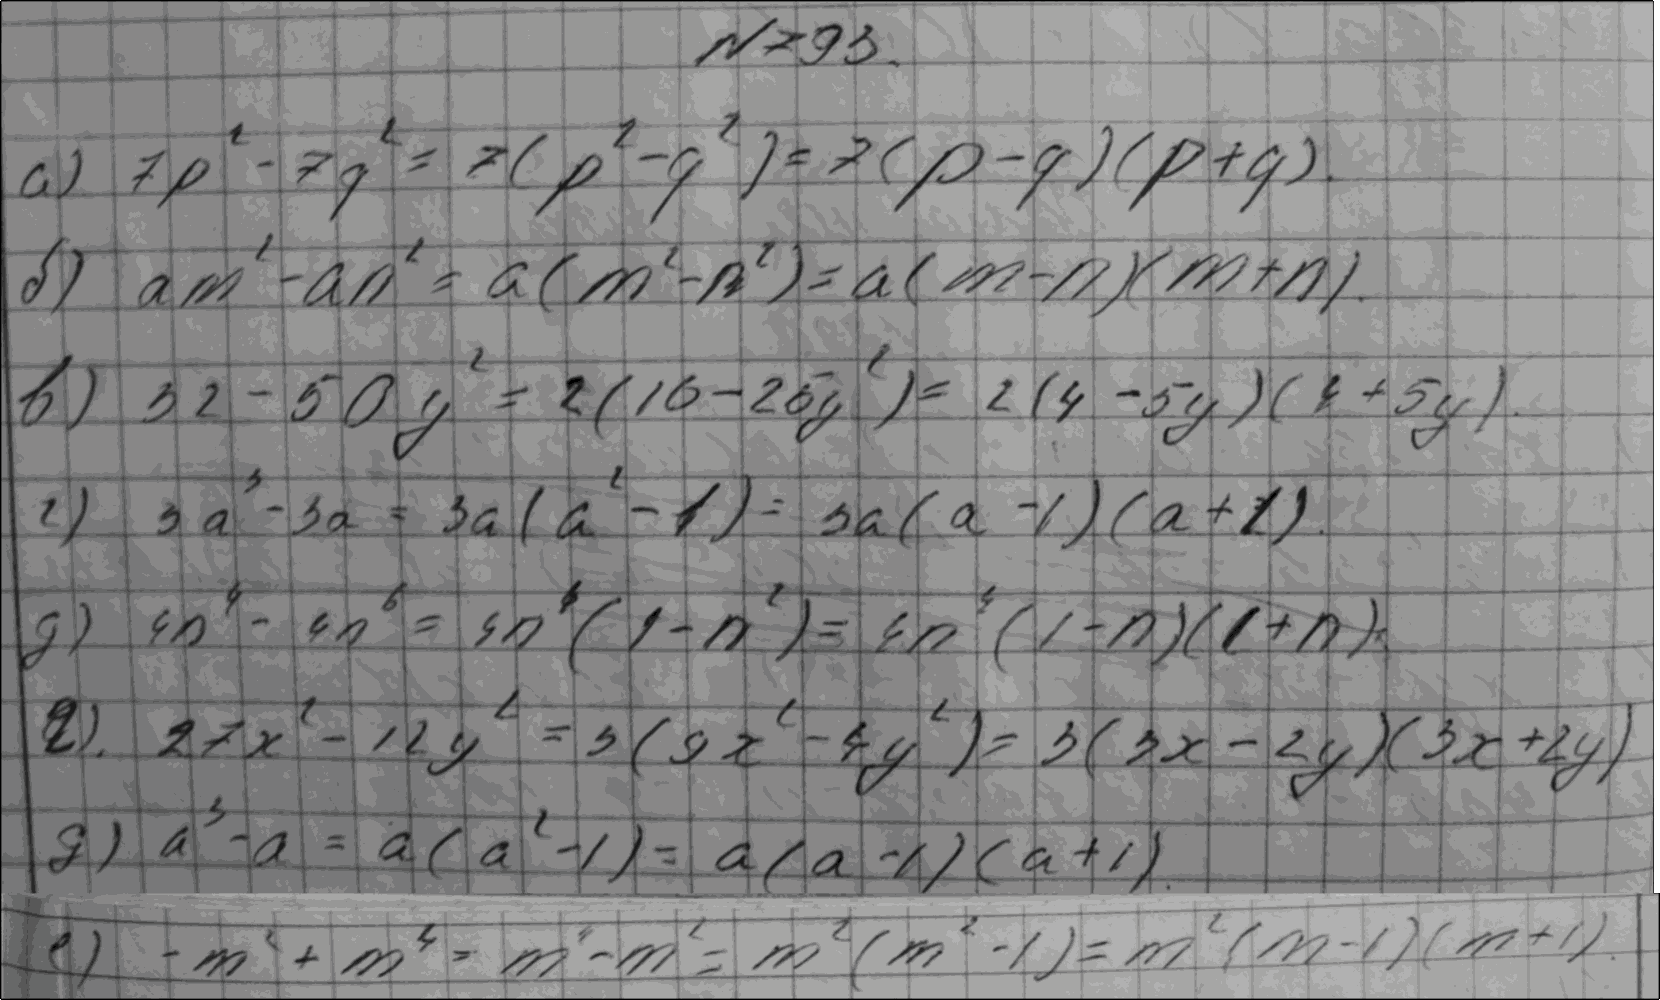 №793.
а) 7p² - 7q² = 7(p² - q²) = 7(p - q)(p + q).
б) am² - an² = a(m² - n²) = a(m - n)(m + n).
в) 32 - 50y² = 2(16 - 25y²) = 2(4 - 5y)(4 + 5y).
г) 3a³ - 3a = 3a(a² - 1) = 3a(a - 1)(a + 1).
д) 4n⁴ - 4n⁶ = 4n⁴(1 - n²) = 4n⁴(1 - n)(1 + n).
г). 27x² - 12y² = 3(9x² - 4y²) = 3(3x - 2y)(3x + 2y)
д) a³ - a = a(a² - 1) = a(a - 1)(a + 1).
е) - m² + m⁴ = m⁴ - m² = m²(m² - 1) = m²(m - 1)(m + 1).